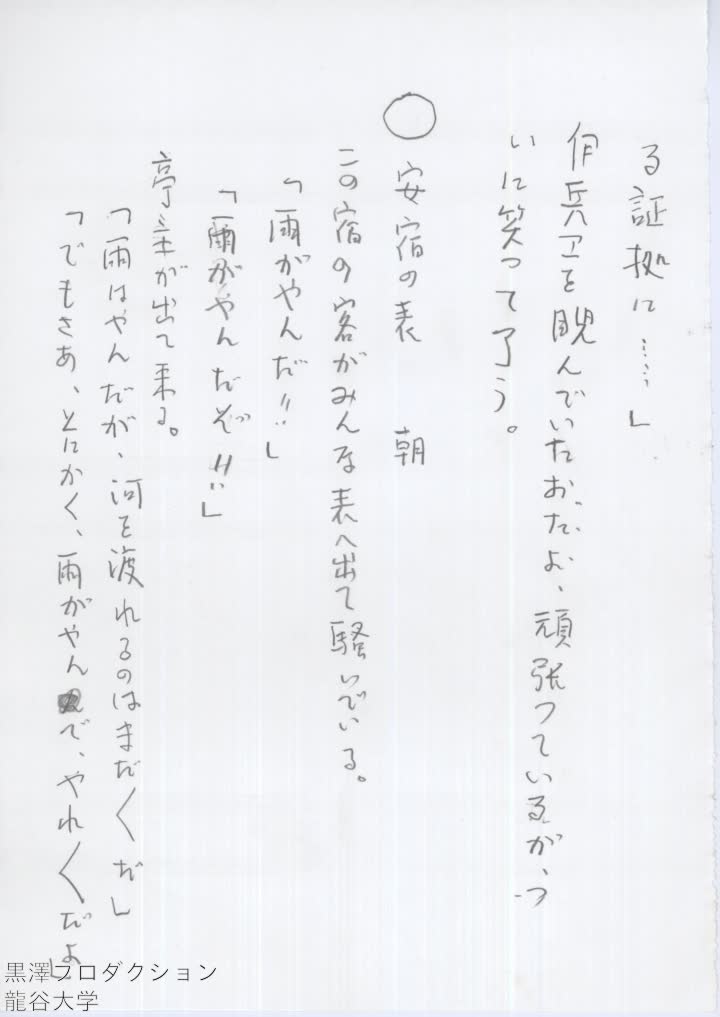 る証拠に……」
伊兵ヱを睨んでいたおだよ、頑張っているが、つ
いに笑って了う。
○ 安宿の表 朝
この宿の客がみんな表へ出て騒いでいる。
「雨がやんだ!!」
「雨がやんだぞッ!!」
亭主が出て来る。
「雨はやんだが、河を渡れるのはまだ〱だ」
「でもさあ、とにかく、雨がやんで、やれ〱だよ」
黒澤プロダクション
龍谷大学